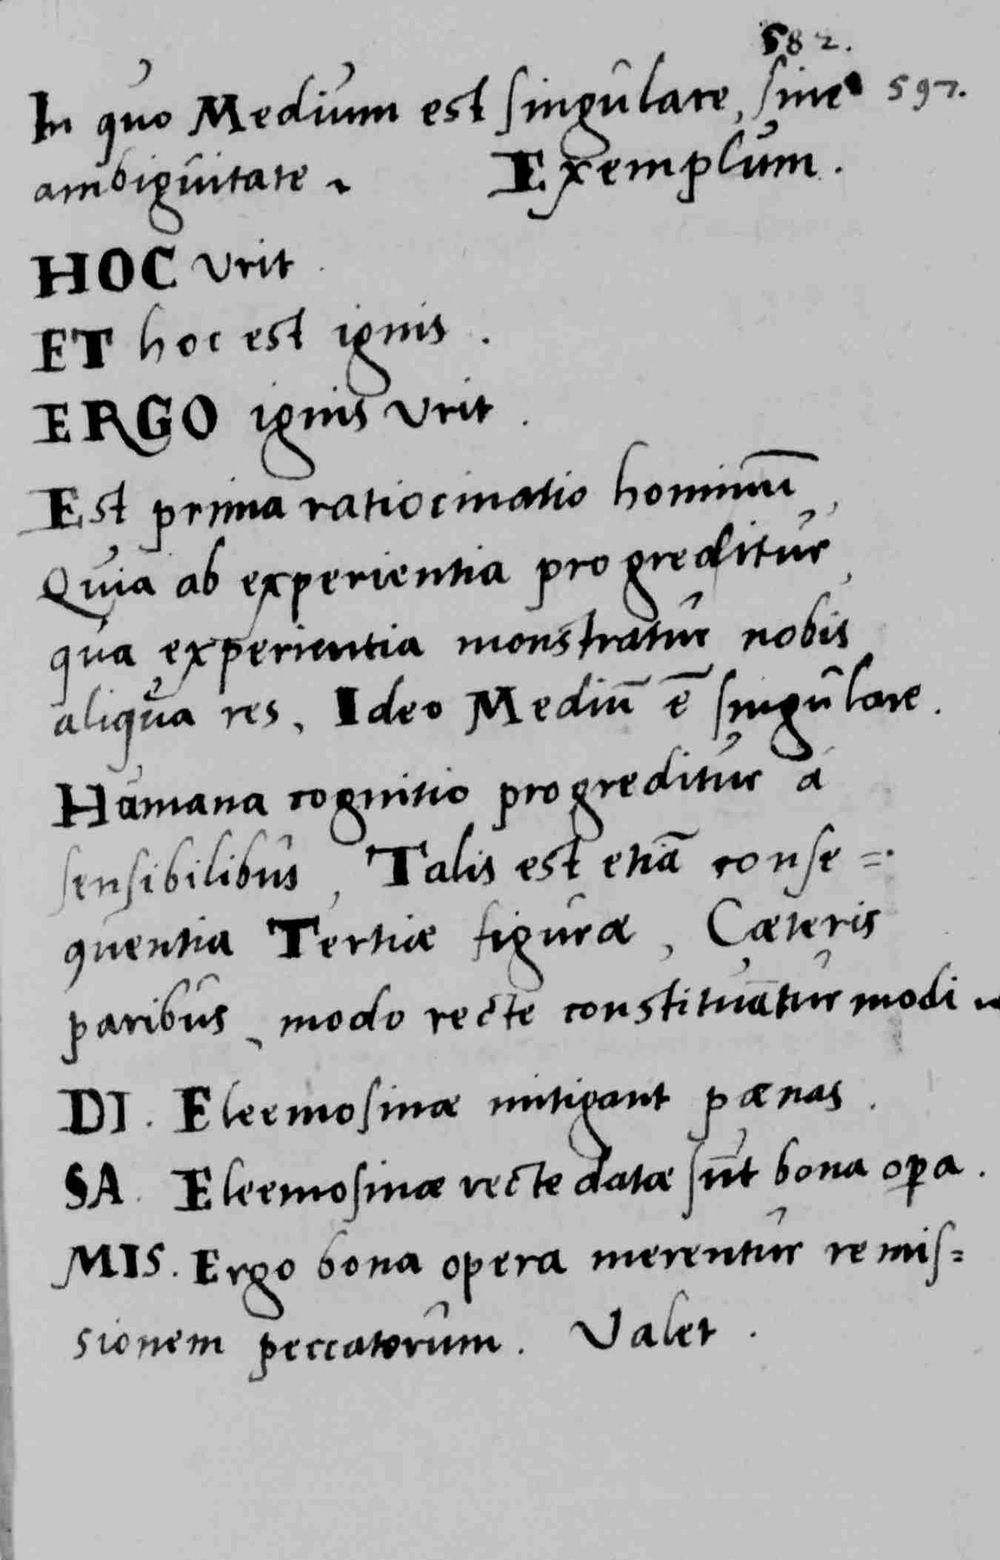 582.
In quo Medium est singulare, sine 597.
ambiguitate. Exemplum.
HOC vrit
ET hoc est ignis.
ERGO ignis vrit.
Est prima ratiocinatio hominū,
Quia ab experientia progreditur,
qua experientia monstratur nobis
aliqua res, Ideo Mediū ē singulare.
Humana cognitio progreditur á
sensibilibus, Talis est etiā conse=
quentia Tertiæ figuræ, Cæteris
paribus, modo recte constituātur modi
DI. Eleemosinæ mitigant pænas.
SA. Eleemosinæ recte datæ sūt bona opa.
MIS. Ergo bona opera merentur remis=
sionem peccatorum. Valet.